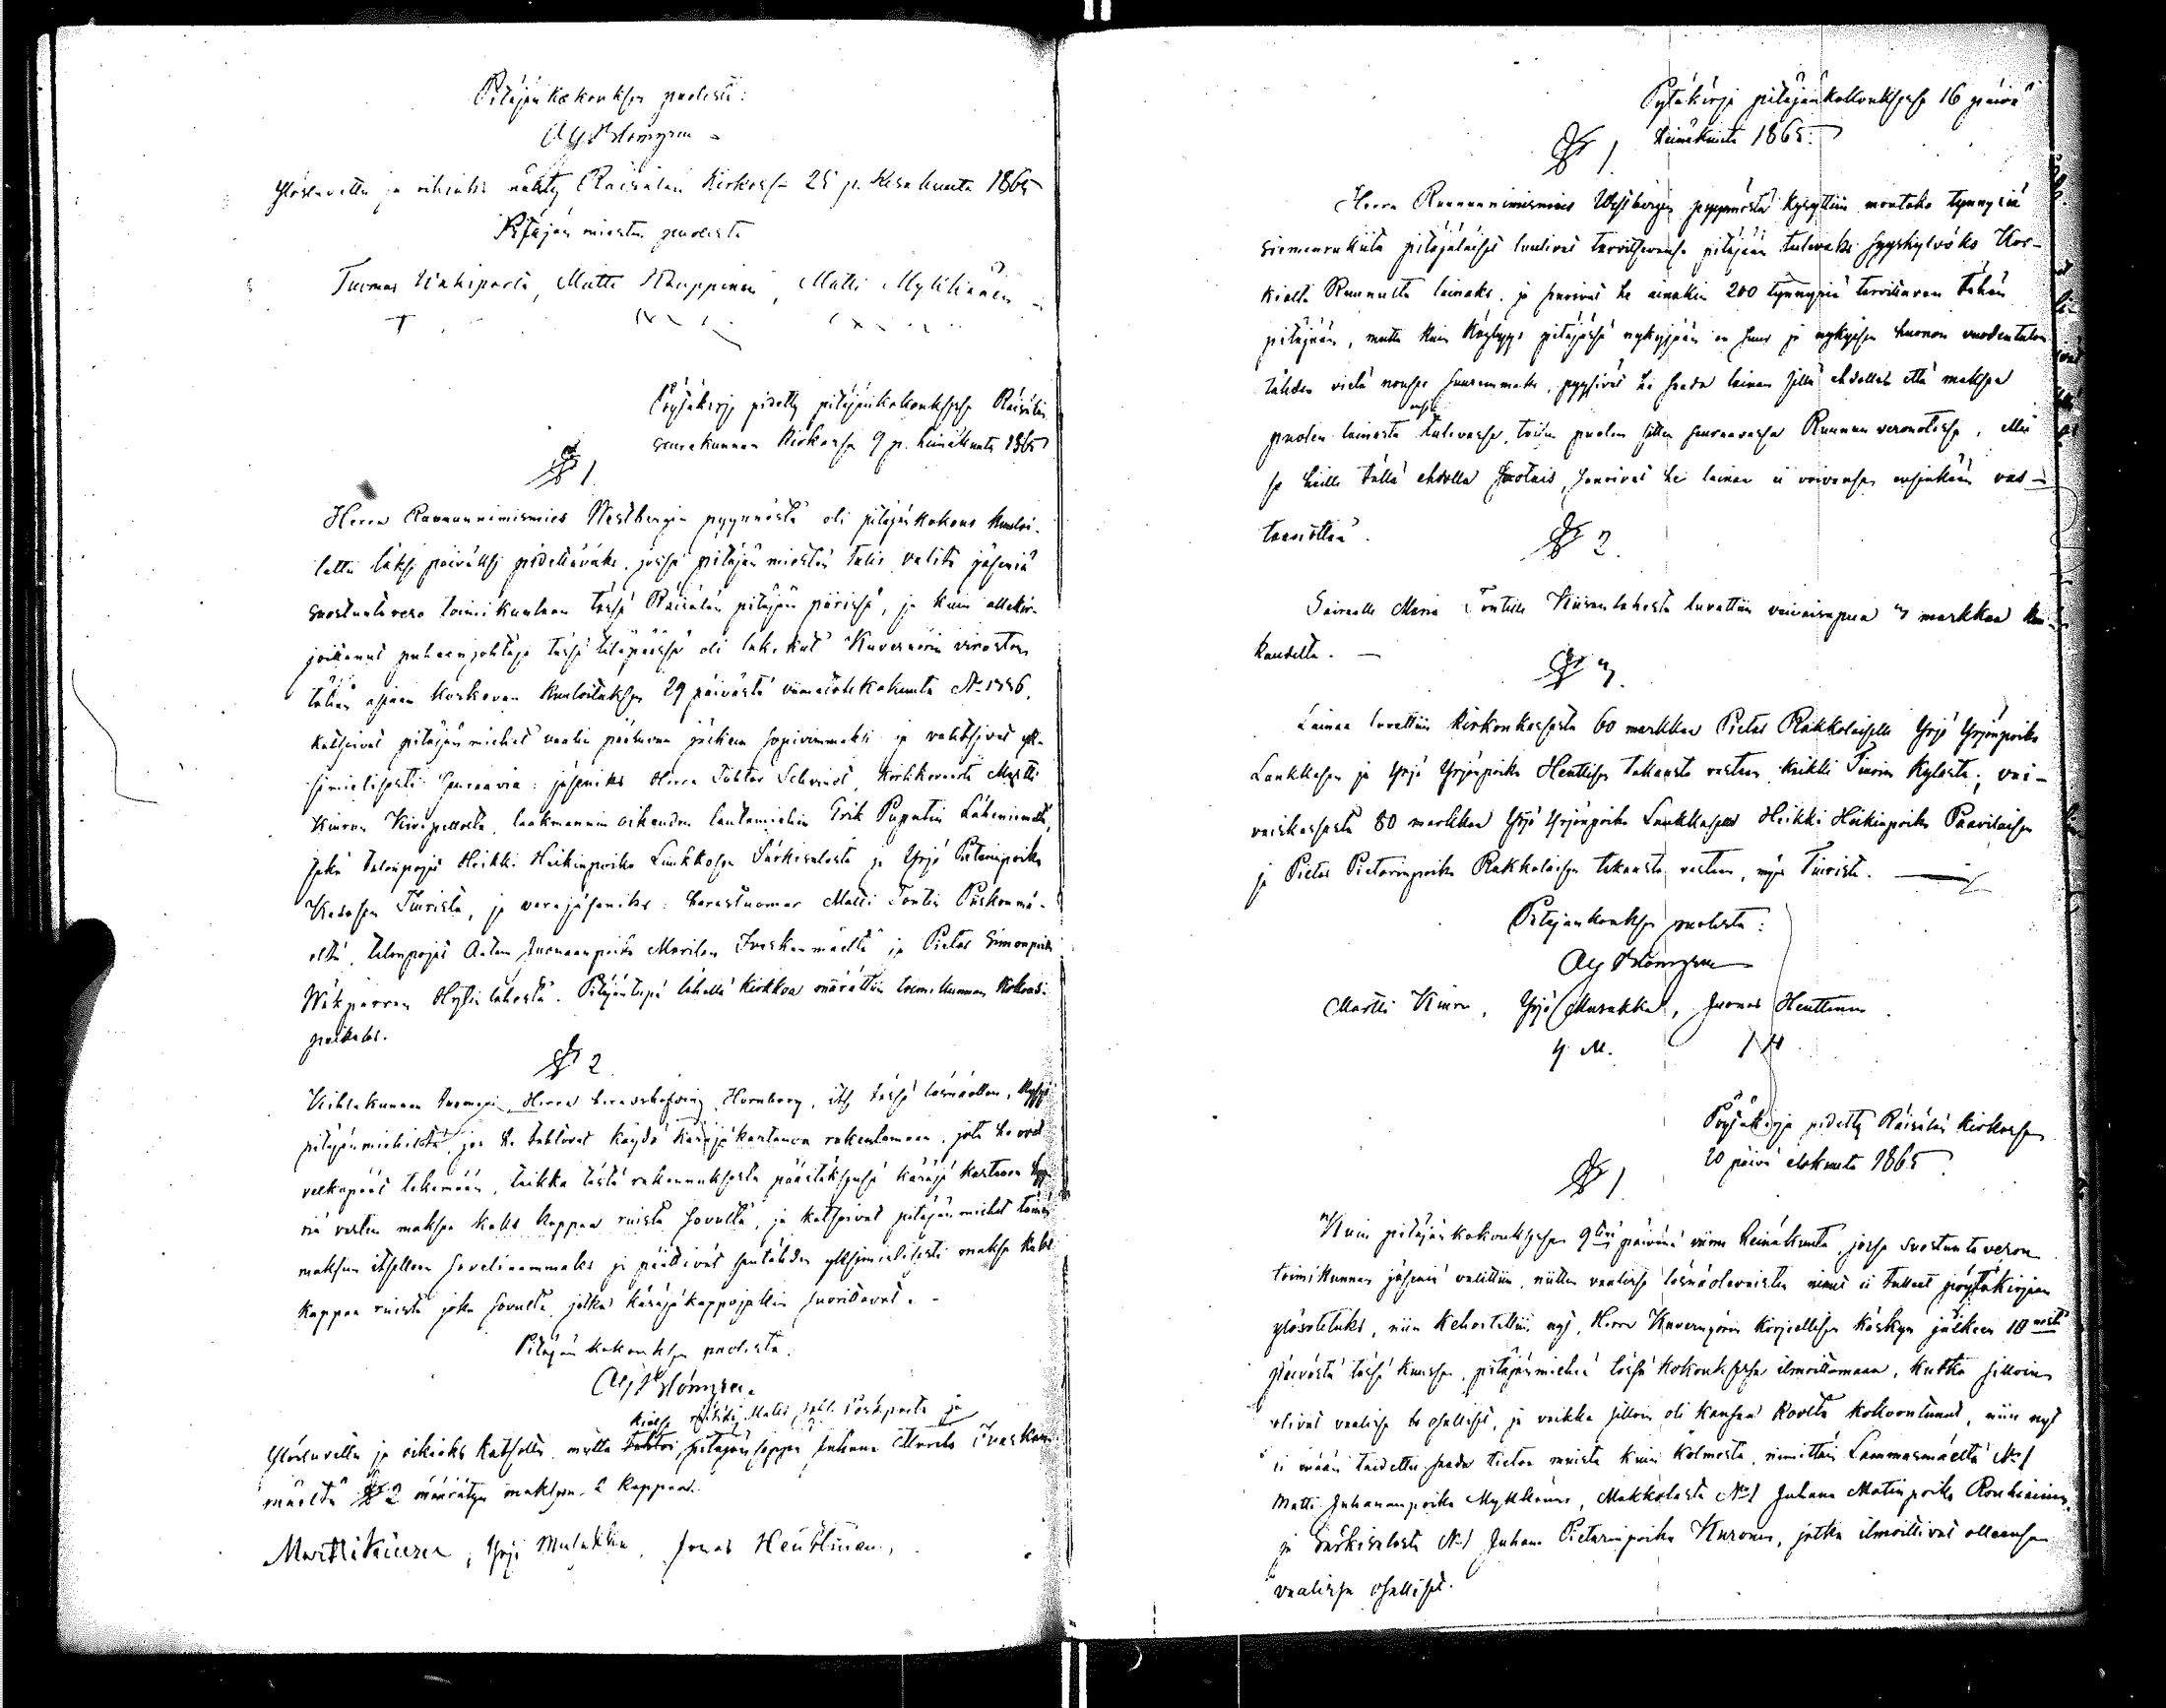 Pitäjänkokouksen puolesta:
Alf Strömgren
Ylösluettu ja oikiaksi nähty Räisälän Kirkossa 25 p. Kesäkuuta 1865
Pitäjän miesten puolesta
Tuomas Matti Kauppinen, Matti Mykkänen
Pöytäkirja pidetty pitäjänkokouksessa Räisälän
seurakunnan Kirkossa 9 p. heinäkuuta 1865
§ 1.
Herra Ruununnimismies Westbergin pyynnöstä oli pitäjänkokous kuuloi-
tettu täksi päiväksi pidettäväksi, jossa pitäjän miesten tulis valita jäseniä
suostuntavero toimikuntaan tässä Räisälän pitäjän piirissä, ja kuin allekir-
joittanut puheenjohtaja tässä tilapäässä oli lukenut Kuvernörin viraston
tähän asiaan koskevan kuuloituksen 29 päivästä viime toukokuuta No 1756,
katsoivat pitäjän miehet vaalin päälunun jälkeen sopivimmaksi ja valitsivat yk-
simielisesti seuraavia: jäseniksi Herra Tohtor Schvindt, Kirkkoväärti Martti
Kiuru Kivipellosta, laakmannin oikeuden lautamiehen Erik Pupulin Läheniemeltä,
sekä talonpojat Heikki Heikinpoika Lankkosen Särkisalosta ja Yrjö Pietarinpoika
Kasosen Tiurista, ja varajäseniksi: herastuomar Matti Tontin Piiskonmä-
eltä, talonpojat Antti Juhonanpoika Marilan Ivaskanmäeltä ja Pietar Simonpoika
Wäkiparran Hytinlahesta. Pitäjäntupa lähellä kirkkoa määrättiin toimikunnan kokous-
paikaksi.
§ 2.
Kihlakunnan tuomari, Herra Hornborg, itse tässä läsnäollen, kysyi
pitäjänmiehiltä, jos he tahtovat käydä käräjäkartanoa rakentamaan, jota he ovat
velkapäät tekemään, taikka tästä rakennuksesta päästäksensä käräjä kartanon
vasten maksaa kaks kappaa ruista savulta, ja katsoivat pitäjän miehet tämän
maksun itsellensä soveliaammaksi ja päättivät sentähden yksimielisesti maksaa kaks
kappaa ruista joka savulta, jotka käräjäkappojakin suorittavat.
Pitäjän kokouksen puolesta.
Alf Strömgren.
Matti ja
Ylösluettu ja oikiaksi katsottu, mutta pitäjän seppä Juhana Marila Ivaskan-
mäeltä § 2 määrätyn maksun 2 kappaa.
Martti Kiuru, Yrjö Musakka, Jonas Heuttinen,
Pytäkirja pitäjänkokouksessa 16 päivä
heinäkuuta 1865.
§ 1.
Herra Ruununnimismies Westbergin pyynnöstä kysyttiin montako tynnyriä
siemenrukiita pitäjäläiset luulivat tarvitsevansa pitäjään tulevaksi syyskylvöksi Kor-
kialta Ruunulta lainaksi, ja sanoivat he ainakin 200 tynnyriä tarvittavan tähän
pitäjään, mutta kuin köyhyys pitäjässä nykyjään on suur ja nykyisen huonon vuodentulon
tähden vielä nousee suuremmaksi, pyysivät he saada lainan sillä ehdolla että maksaa
puolen lainasta tulevassa, toisen puolen sitten seuraavassa Ruunun veronotossa, ellei
se heille tällä ehdolla suotais, sanoivat he lainaa ei voivansa ensinkään vas-
taanottaa.
§ 2.
Sairaalle Maria Tontille Hiisenlahesta luvattiin vaivaisapua 3 markkaa kuu-
kaudelta.
§ 3.
Lainaa luvattiin kirkonkassasta 60 markkaa Pietar Rakkolaiselle Yrjö Yrjönpoika
Lankkosen ja Yrjö Yrjönpoika Henttisen takausta vasten, kaikki Tiurin kylästä; vai-
vaiskassasta 80 markkaa Yrjö Yrjönpoika Lankkoselle Heikki Heikinpoika Paavilaisen
ja Pietar Pietarinpoika Rakkolaisen takausta vasten, myös Tiurista.
Pitäjänkokouksen puolesta:
Alf Strömgren
Martti Kiuru, Yrjö Musakka, Juonas Heuttinen.
Y. M.
Pöytäkirja pidetty Räisälän kirkossa
20 päivä elokuuta 1865
§ 1
Kuin pitäjän kokouksessa 9tenä päivänä viime heinäkuuta, jossa suostuntaveron
toimikunnan jäseniä valittiin, niitten vaalissa läsnäolevaisten nimet ei tulleet pöytäkirjaan
ylösotetuksi, niin kehoitettiin nyt, Herra Kuvernyörin kirjallisen käskyn jälkeen 10nestä
päivästä tässä kuussa, pitäjänmiehiä tässä kokouksessa ilmoittamaan, kutka silloin
olivat vaalissa osalliset, ja vaikka silloin oli kansaa koolta kokoontunut, niin nyt
ei mään taidettu saada tietoa muista kuin kolmesta, nimittäin Lammasmäeltä No 1
Matti Juhananpoika Mykkänen, Makkolasta No 1 Juhana Matinpoika Ronkiainen,
ja Särkisalosta No 1 Juhana Pietarinpoika Kuronen, jotka ilmoittivat olleensa
vaalissa osalliset.